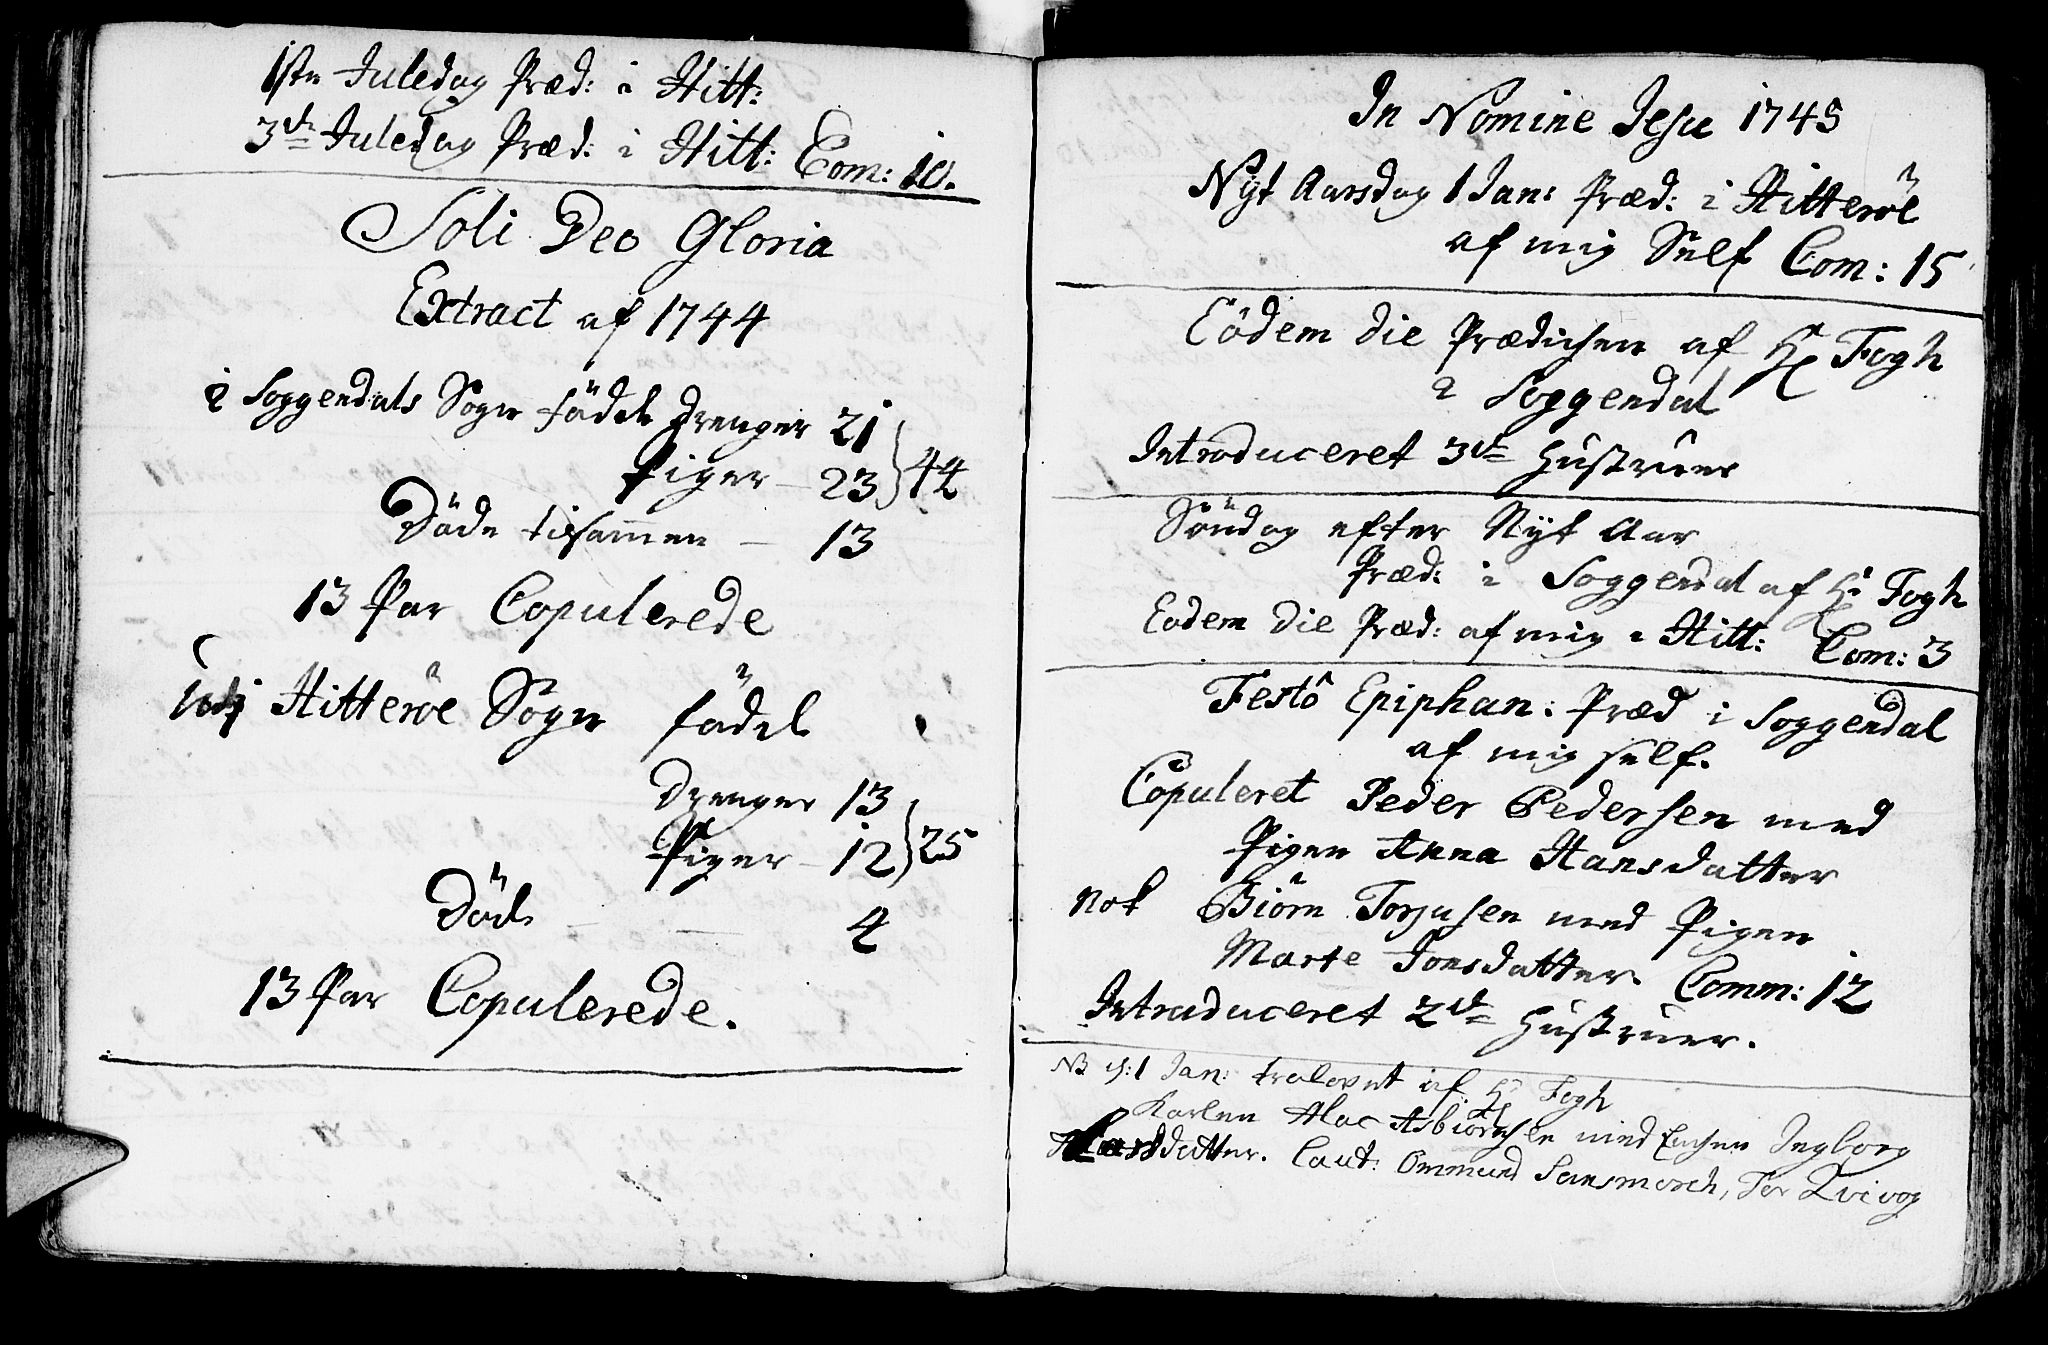 1ste Juledag Præd: i Hitt:
3de Juledag Præd: i Hitt: Com: 10.
Soli Deo Gloria
Extract af 1744
i Soggendals Sogn födde Drenger 21
Piger – 23 } 44
Döde tilsammen – 13
13 Par Copulerede
Udj Hitteröe Sogn födde
Drenger 13
Piger – 12 } 25
Döde – – 4
13 Par Copulerede.
In Nomine Jesu 1745
Nyt Aarsdag 1 Jan: Præd: i Hitteröe
af mig Self Com: 15
Eödem Die Prædichen af Hr Fogh
i Soggendal
Introduceret 3de Hustruer
Söndag efter Nyt Aar
Præd: i Soggendal af Hr Fogh
Eodem Die Præd: af mig i Hitt: Com: 3
Festô Epiphan: Præd i Soggendal
af mig self.
Copuleret Peder Pedersen med
Pigen Anna Hansdatter
Nok Biörn Torjusen med Pigen
Marte Jonsdatter. Comm: 12
Introduceret 2de Hustruer.
NB d: 1 Jan: trolovet af Hr Fogh
Karlen Aloc Asbiörnsen med Enchen Ingborg
datter. Caut: Ommund Sansmarch, Tor Qvivog